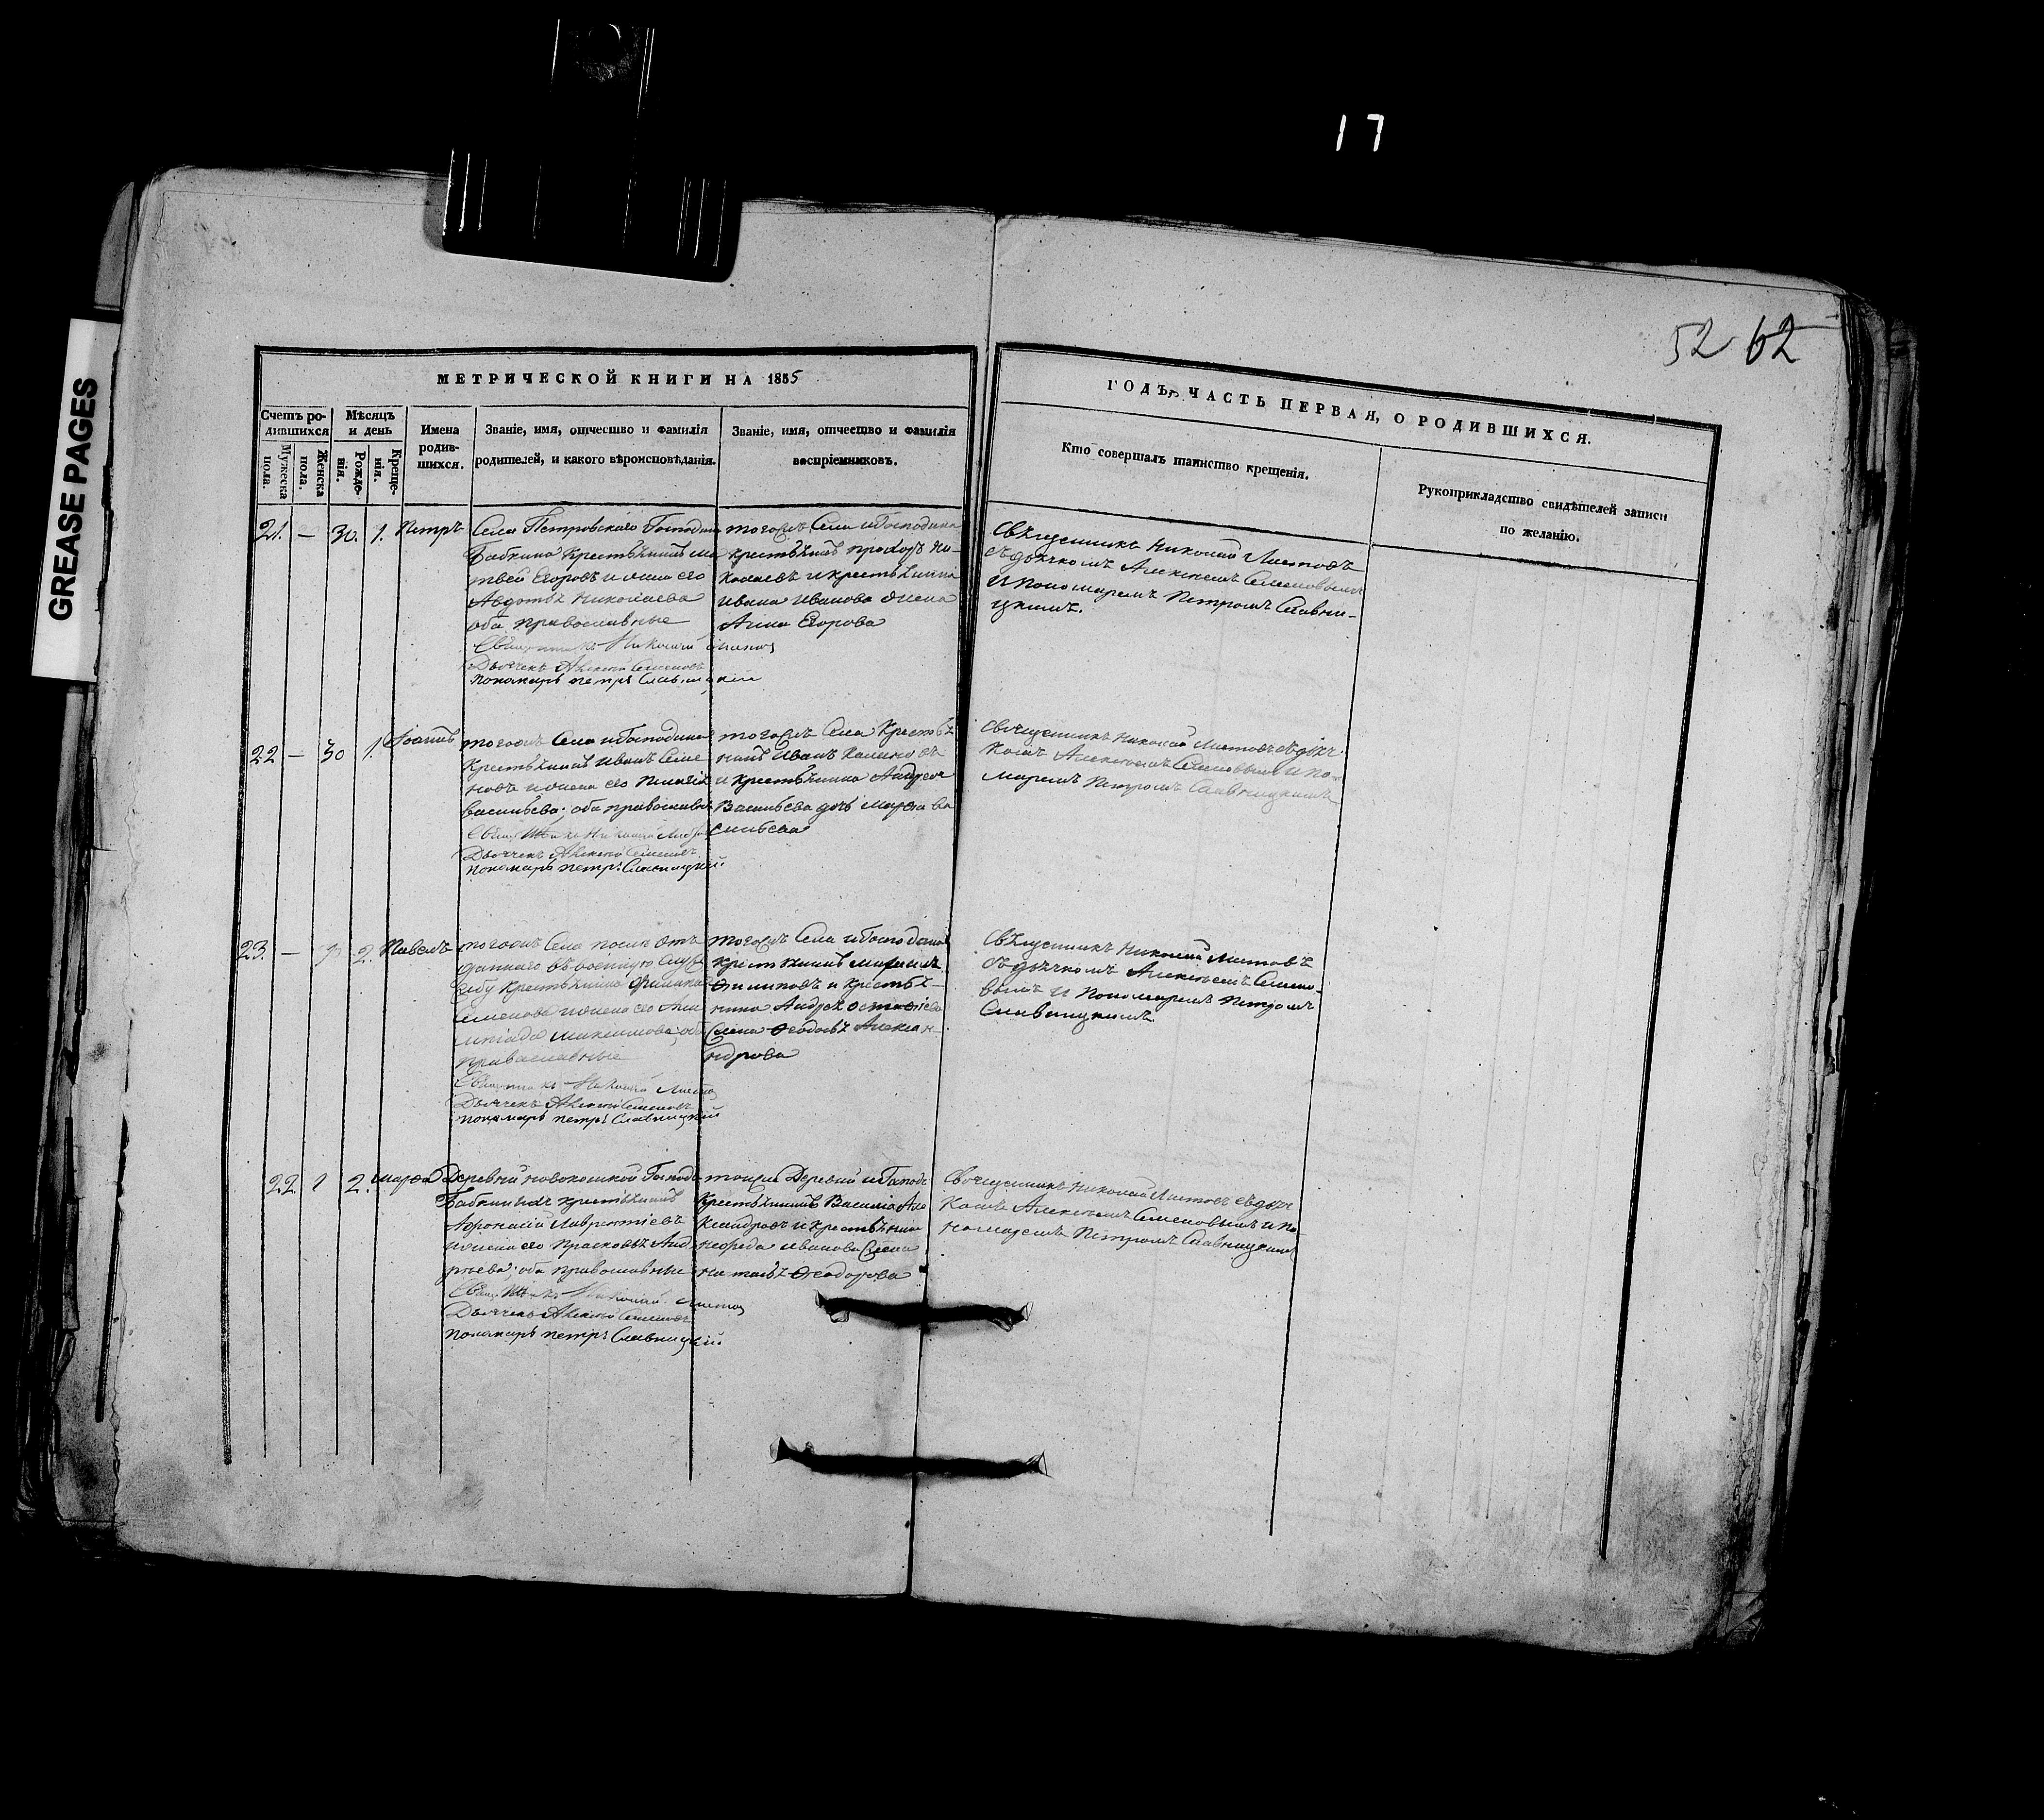 17
52 62
GREASE PAGES
МЕТРИЧЕСКОЙ КНИГИ НА 1855
ГОДЪ, ЧАСТЬ ПЕРВАЯ, О РОДИВШИХСЯ.
Счетъ ро-
дившихся
Мужеска
пола.
Женска
пола.
Мѣсяцъ
и день
Рожде-
нія.
Креще-
нія.
Имена
родив-
шихся.
Званіе, имя, отчество и фамилія
родителей, и какого вѣроисповѣданія.
Званіе, имя, отчество и фамилія
воспріемниковъ.
Кто совершалъ таинство крещенія.
Рукоприкладство свидѣтелей записи
по желанію.
21. — 30. 1. Петръ
Села Петровскаго Господина
Бабкина Крестьянинъ Ма
твей Егоровъ и жена его
Авдотья Николаева
оба православные
Священникъ Николай
Дьячекъ Алексей Семеновъ
пономарь петръ Славницкій
тогожъ Села и Господина
крестьянинъ Прохоръ Ни-
колаевъ и крестьянина
Ивана Иванова жена
Анна Егорова
Священникъ Николай Листовъ
съ дьячкомъ Алексеемъ Семеновымъ
и пономаремъ Петромъ Славни-
цкимъ.
22 — 30 1. Іоаннъ
тогожъ Села и Господина
Крестьянинъ Иванъ Семе
новъ и жена его
васильева; оба православные
Священникъ Николай
Дьячекъ Алексей Семеновъ
пономарь петръ Славницкій
тогожъ Села Крестья
нинъ Иванъ
и крестьянина Андрея
Васильева дочь Марѳа Ва
сильева
Священникъ Николай Листовъ съ дьяч
комъ Алексеемъ Семеновымъ и по
маремъ Петромъ Славницкимъ
23. — 2. Павелъ
тогожъ Села после отъ
даннаго въ военную Служ
бу Крестьянина Филипа
Семенова жена его
Максимова; оба
православные
Священникъ Николай
Дьячекъ Алексей Семеновъ
пономарь петръ Славницкій
тогожъ Села и Господина
крестьянинъ Максимъ
Филиповъ и крестья-
нина Андрея
жена Ѳедосья Алексан
ндрова
Священникъ Николай Листовъ
съ дьячкомъ Алексеемъ Семено-
вымъ и Пономаремъ Петромъ
Славницкимъ.
22 1 2. Марѳа
Деревни
Бабкина крестьянинъ
Афонасій Лаврентіевъ
и жена его Прасковья Анд
реева; оба православные
Николай
Дьячекъ Алексей Семеновъ
пономарь петръ Славницкій
тойже Деревни и Господ
крестьянинъ Василій Але
ксандровъ и крестьянина
Иванова жена
Наталья Ѳеодорова
Священникъ Николай Листовъ съ дьяч
комъ Алексеемъ Семеновымъ и по
номаремъ Петромъ Славницкимъ